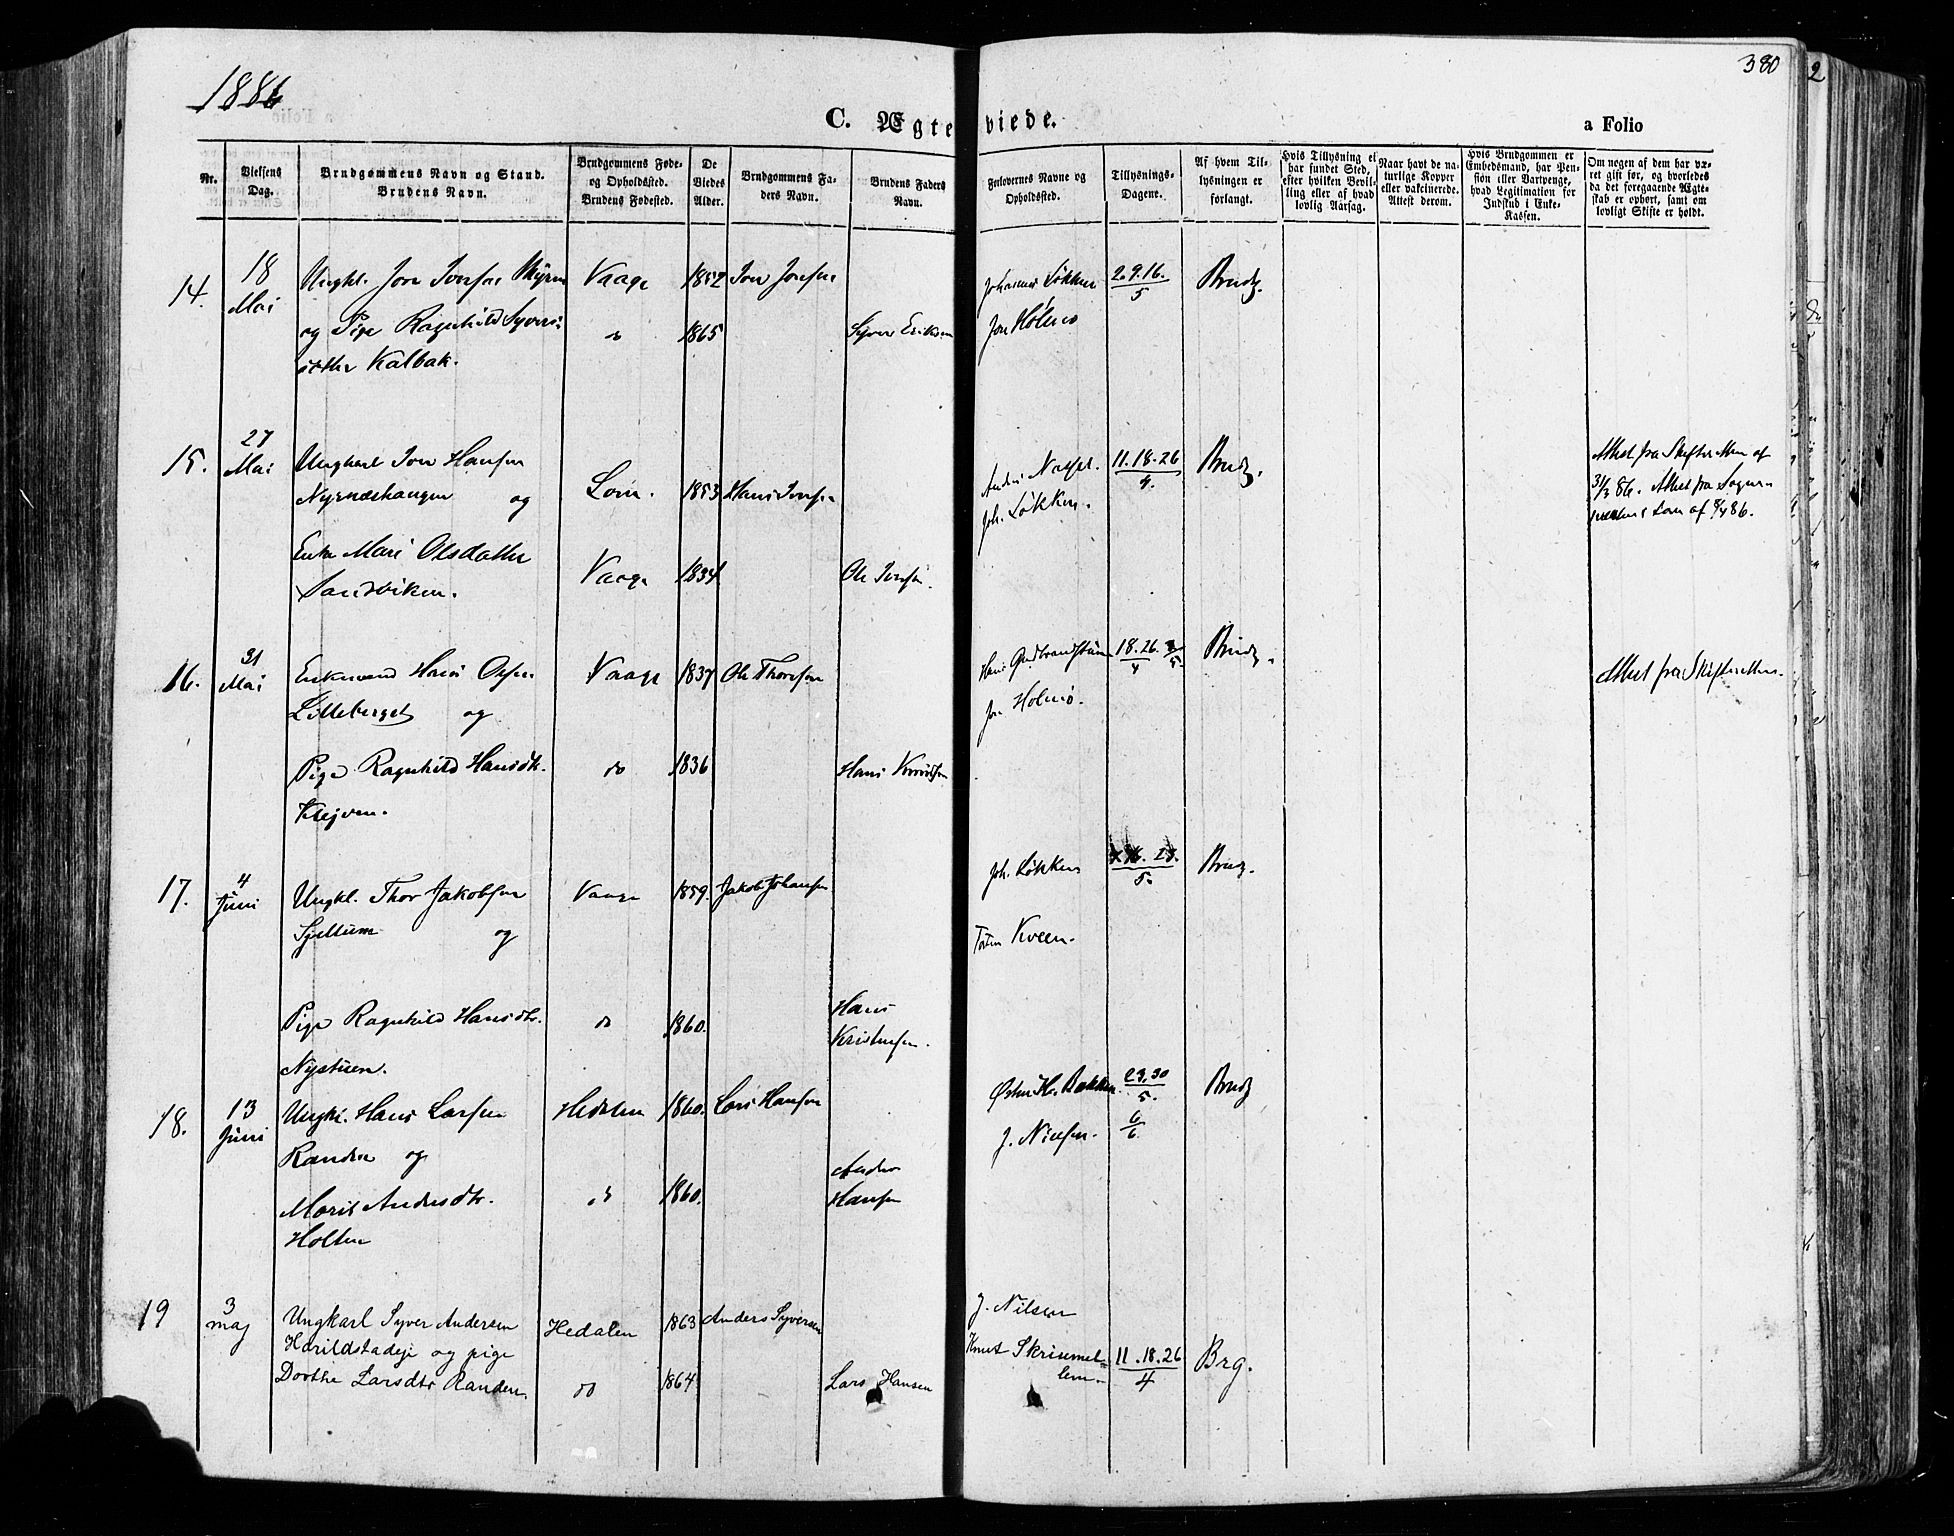 1886
380
2
C. Ægteviede.
a Folio
Nr.
Vielsens Dag.
Brudgommens Navn og Stand. Brudens Navn.
Brudgommens Føde- og Opholdssted. Brudens Fødested.
De Viedes Alder.
Brudgommens Faders Navn.
Brudens Faders Navn.
Forlovernes Navne og Opholdssted.
Tillysnings-Dagene.
Af hvem Tillysningen er forlangt.
Hvis Tillysning ei har fundet Sted, efter hvilken Bevilling eller af hvad lovlig Aarsag.
Naar havt de naturlige Kopper eller vakcinerede. Attest derom.
Hvis Brudgommen er Embedsmand, har Pension eller Vartpenge, hvad Legitimation for Indskud i Enke-Kassen.
Om nogen af dem har været gift før, og hvorledes da det foregaaende Ægteskab er ophørt, samt om lovligt Skifte er holdt.
14. 18 Mai
Ungkl. Jon Iversen
Vaage 1852 Iver Jonsen
og Pige Ragnhild Syvers-
dotter Kalbak.
do 1865 Syver Eriksen
Johannes Løkken
Jon Holmø
2.9.16. / 5
Brudg.
15. 27 Mai
Ungkarl Iver Hansen
Nyrnæshaugen og
Lom. 1853 Hans Iversen
Enke Mari Olsdatter
Sandviken.
Vaage 1834 Ole Iversen.
Joh. Løkken.
11.18.26 / 4.
Brudg.
Attest fra Skifteretten af
31/3 86. Attest fra Sogne-
præsten i Lom af /4 86.
16. 31 Mai
Enkemand Hans Olsen
Lilleberget og
Vaage 1837 Ole Thorsen
Pige Ragnhild Hansdtr.
Kleiven.
do 1836 Hans
Hans Gudbrandstuen
Jon Holmø.
18.26. / 4
Brudg.
Attest fra Skifteretten.
17. 4 Juni
Ungkl. Thor Jakobsen
Sjellum og
Vaage 1859. Jakob Johansen
Pige Ragnhild Hansdtr.
Nystuen.
do 1860. Hans
Kristensen.
Joh. Løkken
Kveen.
16. 23. / 5.
Brudg.
18. 13 Juni
Ungkl. Hans Larsen
Randen og
Hedalen 1860. Lars Hansen
Marit Andersdtr.
Holten
do 1860. Anders
Hansen
Østen H. Bakken.
J. Nielsen.
23.30 / 5.
6/6.
Brudg
19 3 maj
Ungkarl Syver Andersen
Harildstadeje og pige
Dorthe Larsdtr Randen.
Hedalen 1863 Anders Syversen
do 1864 Lars Hansen
J. Nilsen
Knut Skriumel-
len.
11.18.26 / 4
Brg.